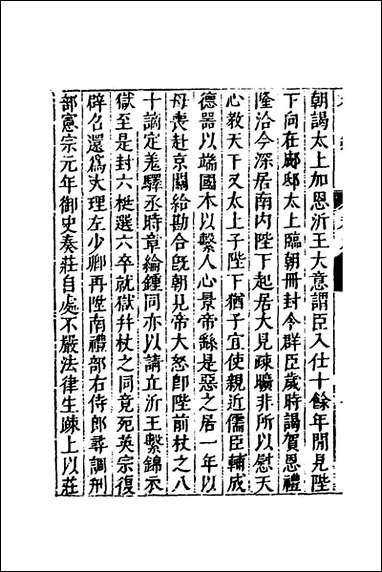 朝謁太上加恩沂王大意謂臣入仕十餘年閒見陛
下向在郕邸太上臨朝冊封令群臣歲時謁賀恩禮
隆洽今深居南内陛下起居大見疎曠非所以慰天
心教天下又太上子陛下猶子宜使親近儒臣輔成
德器以端國本以繫人心景帝繇是惡之居一年以
母喪赴京關給勘合旣朝見帝大怒卽陛前杖之八
十謫定羗驛丞時章綸鍾同亦以請立沂王繫錦衣
獄至是封六梃選六卒就獄幷杖之同竟死英宗復
辟召還爲大理左少卿再陞南禮部右侍郎尋調刑
部憲宗元年御史奏莊自處不嚴法律生疎上以莊